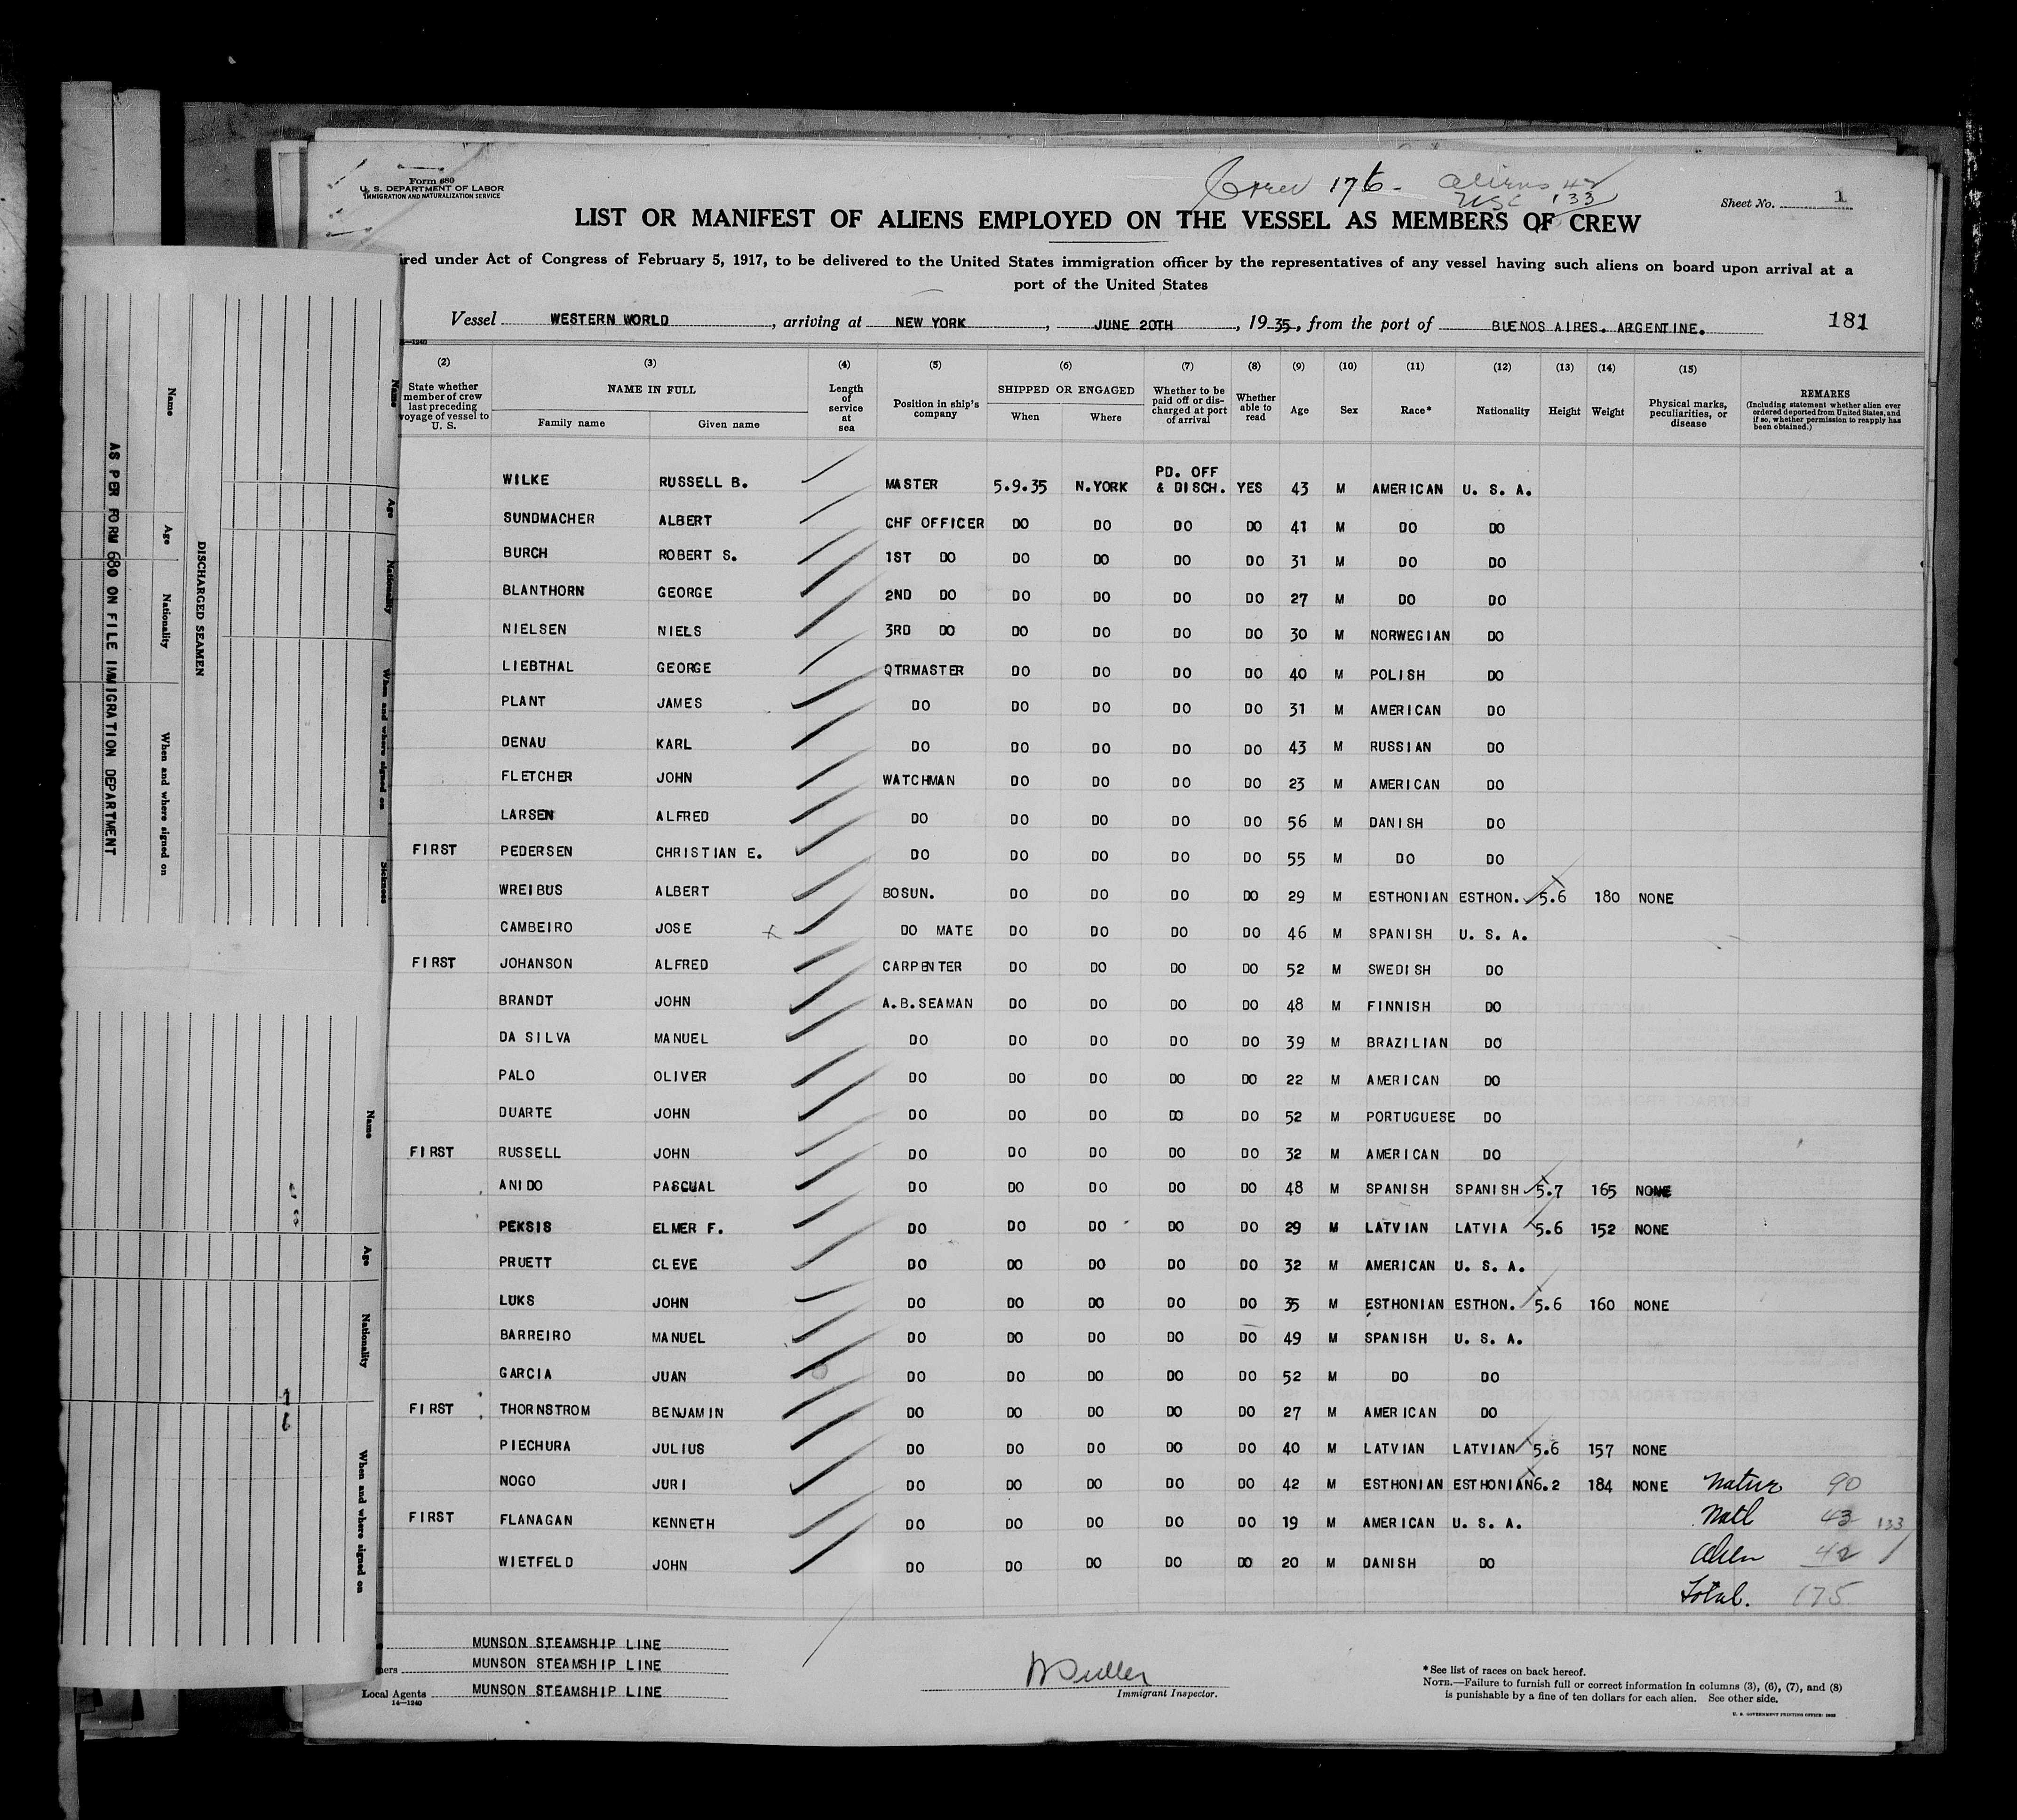 Form 680
U. S. DEPARTMENT OF LABOR
IMMIGRATION AND NATURALIZATION SERVICE
Crew 176- Aliens 42
USC 133
Sheet No. 1
LIST OR MANIFEST OF ALIENS EMPLOYED ON THE VESSEL AS MEMBERS OF CREW
ired under Act of Congress of February 5, 1917, to be delivered to the United States immigration officer by the representatives of any vessel having such aliens on board upon arrival at a
port of the United States
Vessel WESTERN WORLD, arriving at NEW YORK, JUNE 20TH, 1935, from the port of BUENOS AIRES. ARGENTINE.
181
(2) (3) (4) (5) (6) (7) (8) (9) (10) (11) (12) (13) (14) (15)
State whether member of crew last preceding voyage of vessel to U. S. NAME IN FULL Family name Given name Length of service at sea Position in ship's company SHIPPED OR ENGAGED When Where Whether to be paid off or discharged at port of arrival Whether able to read Age Sex Race* Nationality Height Weight Physical marks, peculiarities, or disease REMARKS (Including statement whether alien ever ordered deported from United States, and if so, whether permission to reapply has been obtained.)
WILKE RUSSELL B. MASTER 5.9.35 N.YORK PD. OFF & DISCH. YES 43 M AMERICAN U. S. A.
SUNDMACHER ALBERT CHF OFFICER DO DO DO DO 41 M DO DO
BURCH ROBERT S. 1ST DO DO DO DO DO 31 M DO DO
BLANTHORN GEORGE 2ND DO DO DO DO DO 27 M DO DO
NIELSEN NIELS 3RD DO DO DO DO DO 30 M NORWEGIAN DO
LIEBTHAL GEORGE QTRMASTER DO DO DO DO 40 M POLISH DO
PLANT JAMES DO DO DO DO DO 31 M AMERICAN DO
DENAU KARL DO DO DO DO DO 43 M RUSSIAN DO
FLETCHER JOHN WATCHMAN DO DO DO DO 23 M AMERICAN DO
LARSEN ALFRED DO DO DO DO DO 56 M DANISH DO
FIRST PEDERSEN CHRISTIAN E. DO DO DO DO DO 55 M DO DO
WREIBUS ALBERT BOSUN. DO DO DO DO 29 M ESTHONIAN ESTHON. 5.6 180 NONE
CAMBEIRO JOSE DO MATE DO DO DO DO 46 M SPANISH U. S. A.
FIRST JOHANSON ALFRED CARPENTER DO DO DO DO 52 M SWEDISH DO
BRANDT JOHN A.B.SEAMAN DO DO DO DO 48 M FINNISH DO
DA SILVA MANUEL DO DO DO DO DO 39 M BRAZILIAN DO
PALO OLIVER DO DO DO DO DO 22 M AMERICAN DO
DUARTE JOHN DO DO DO DO DO 52 M PORTUGUESE DO
FIRST RUSSELL JOHN DO DO DO DO DO 32 M AMERICAN DO
ANIDO PASCUAL DO DO DO DO DO 48 M SPANISH SPANISH 5.7 165 NONE
PEKSIS ELMER F. DO DO DO DO DO 29 M LATVIAN LATVIA 5.6 152 NONE
PRUETT CLEVE DO DO DO DO DO 32 M AMERICAN U. S. A.
LUKS JOHN DO DO DO DO DO 35 M ESTHONIAN ESTHON. 5.6 160 NONE
BARREIRO MANUEL DO DO DO DO DO 49 M SPANISH U. S. A.
GARCIA JUAN DO DO DO DO DO 52 M DO DO
FIRST THORNSTROM BENJAMIN DO DO DO DO DO 27 M AMERICAN DO
PIECHURA JULIUS DO DO DO DO DO 40 M LATVIAN LATVIAN 5.6 157 NONE
NOGO JURI DO DO DO DO DO 42 M ESTHONIAN ESTHONIAN 6.2 184 NONE Natur 90
FIRST FLANAGAN KENNETH DO DO DO DO DO 19 M AMERICAN U. S. A. Natl 43 133
WIETFELD JOHN DO DO DO DO DO 20 M DANISH DO Alien 42
Total. 175
MUNSON STEAMSHIP LINE
ners MUNSON STEAMSHIP LINE
Local Agents MUNSON STEAMSHIP LINE
14—1240
Immigrant Inspector.
*See list of races on back hereof.
NOTE.—Failure to furnish full or correct information in columns (3), (6), (7), and (8)
is punishable by a fine of ten dollars for each alien. See other side.
U. S. GOVERNMENT PRINTING OFFICE
AS PER FORM 680 ON FILE IMMIGRATION DEPARTMENT
Name Age Nationality When and where signed on
DISCHARGED SEAMEN
Name Age Nationality When and where signed on Sickness
Name Age Nationality When and where signed on